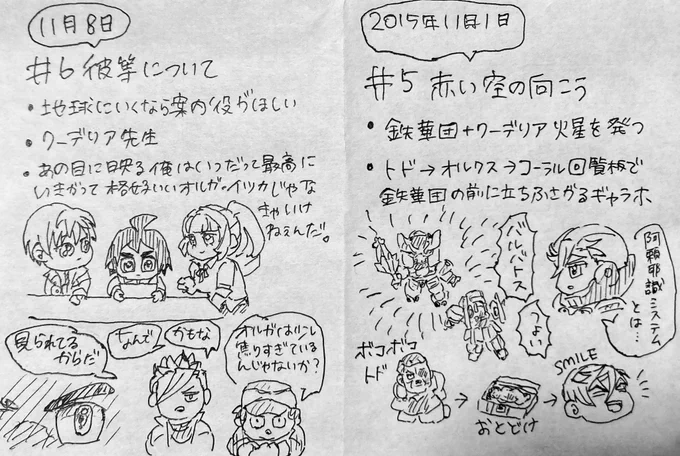 11月8日
#6 彼等について
・地球にいくなら案内役がほしい
・クーデリア先生
・あの目に映る俺はいつだって最高に
いきがって 格好いいオルガ・イツカじゃな
きゃいけ
ねぇんだ。
見られてる
からだ
なんで
かもな
オルガは少し
焦りすぎている
んじゃないか?
2015年11月1日
#5 赤い空の向こう
・鉄華団+クーデリア 火星を発つ
・トド→オルクス→コーラル回覧板で
鉄華団の前に立ちふさがるギャラホ
バルバトス
つよい
阿頼耶識システム
とは…
ボコボコ
トド
おとどけ
SMILE